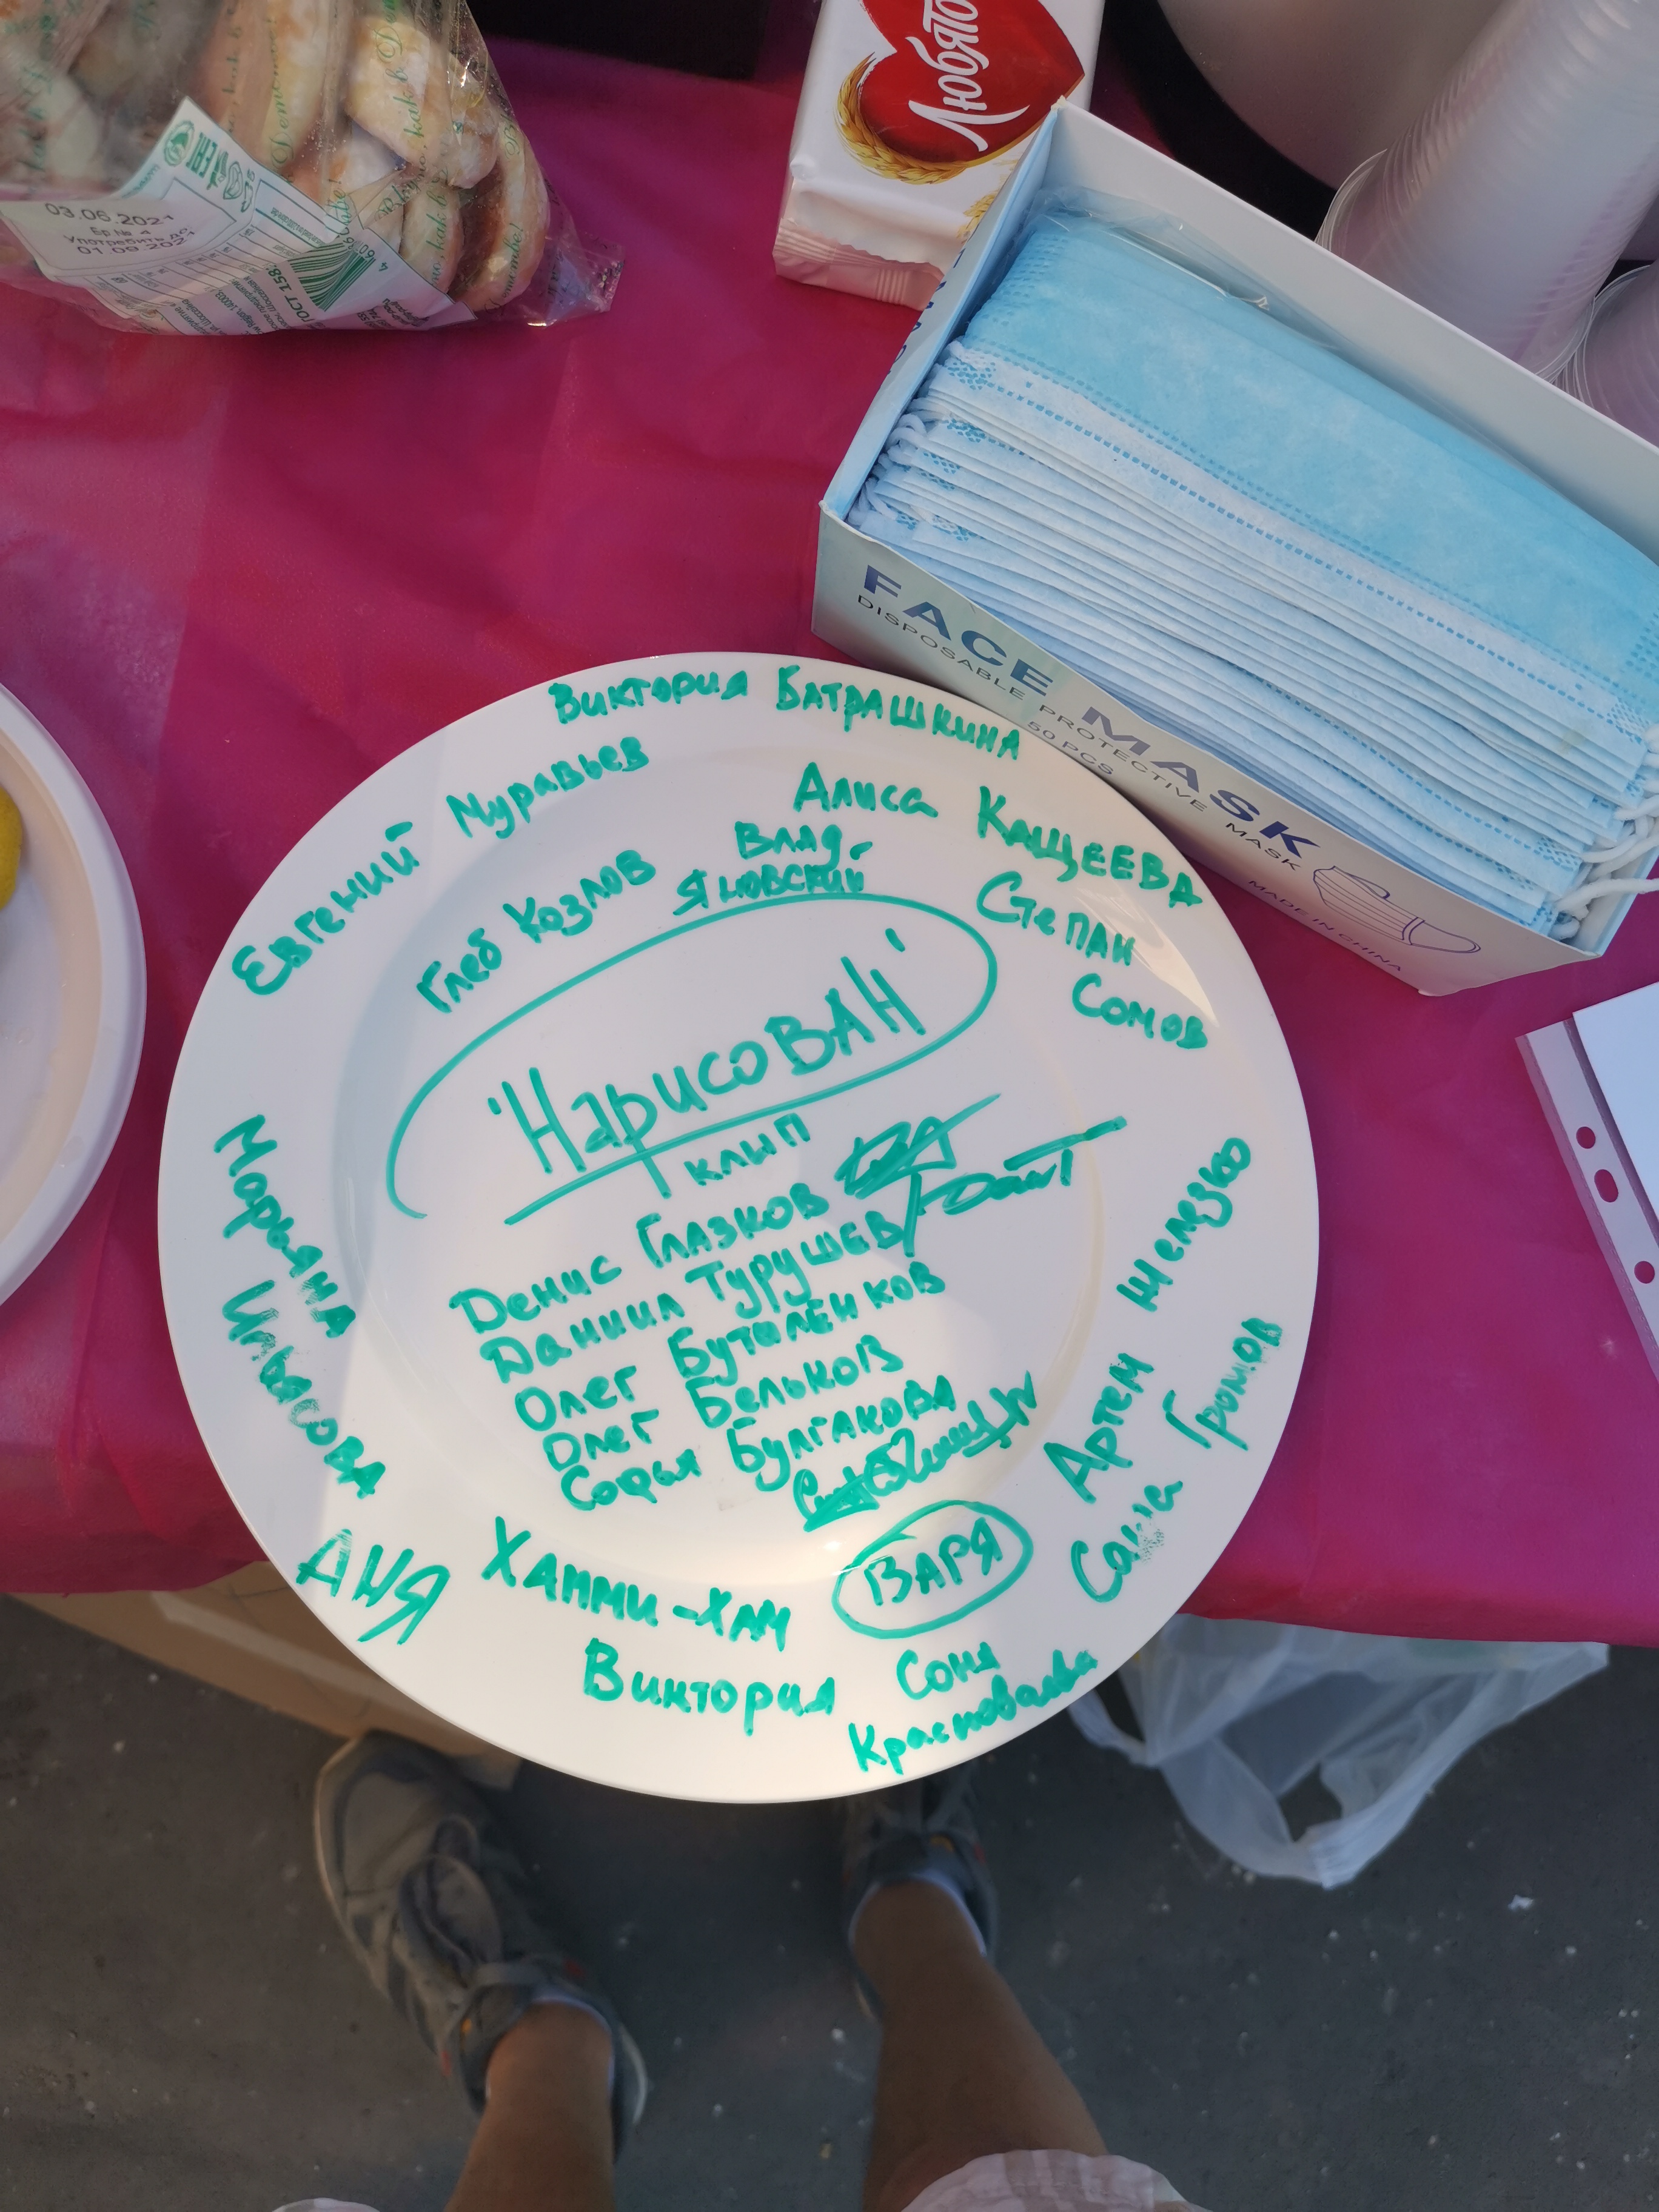 Любято
03.06.2021
бр № 4
Употребить до
01 09 2021
ГОСТ 158
FACE MASK
DISPOSABLE PROTECTIVE MASK
50 PCS
MADE IN CHINA
Виктория Батрашкина
Евгений Муравьев
Алиса Кащеева
Глеб Козлов
Влад
Яновский
Степан
Сомов
"Нарисован"
клип
Денис Глазков
Даниил Турушев
Олег Бутылёнков
Олег Бельков
Софья Булгакова
Марьяна Ильясова
Артем Шелезко
Саша Громов
Аня
Хамми-Хам
Варя
Виктория
Соня